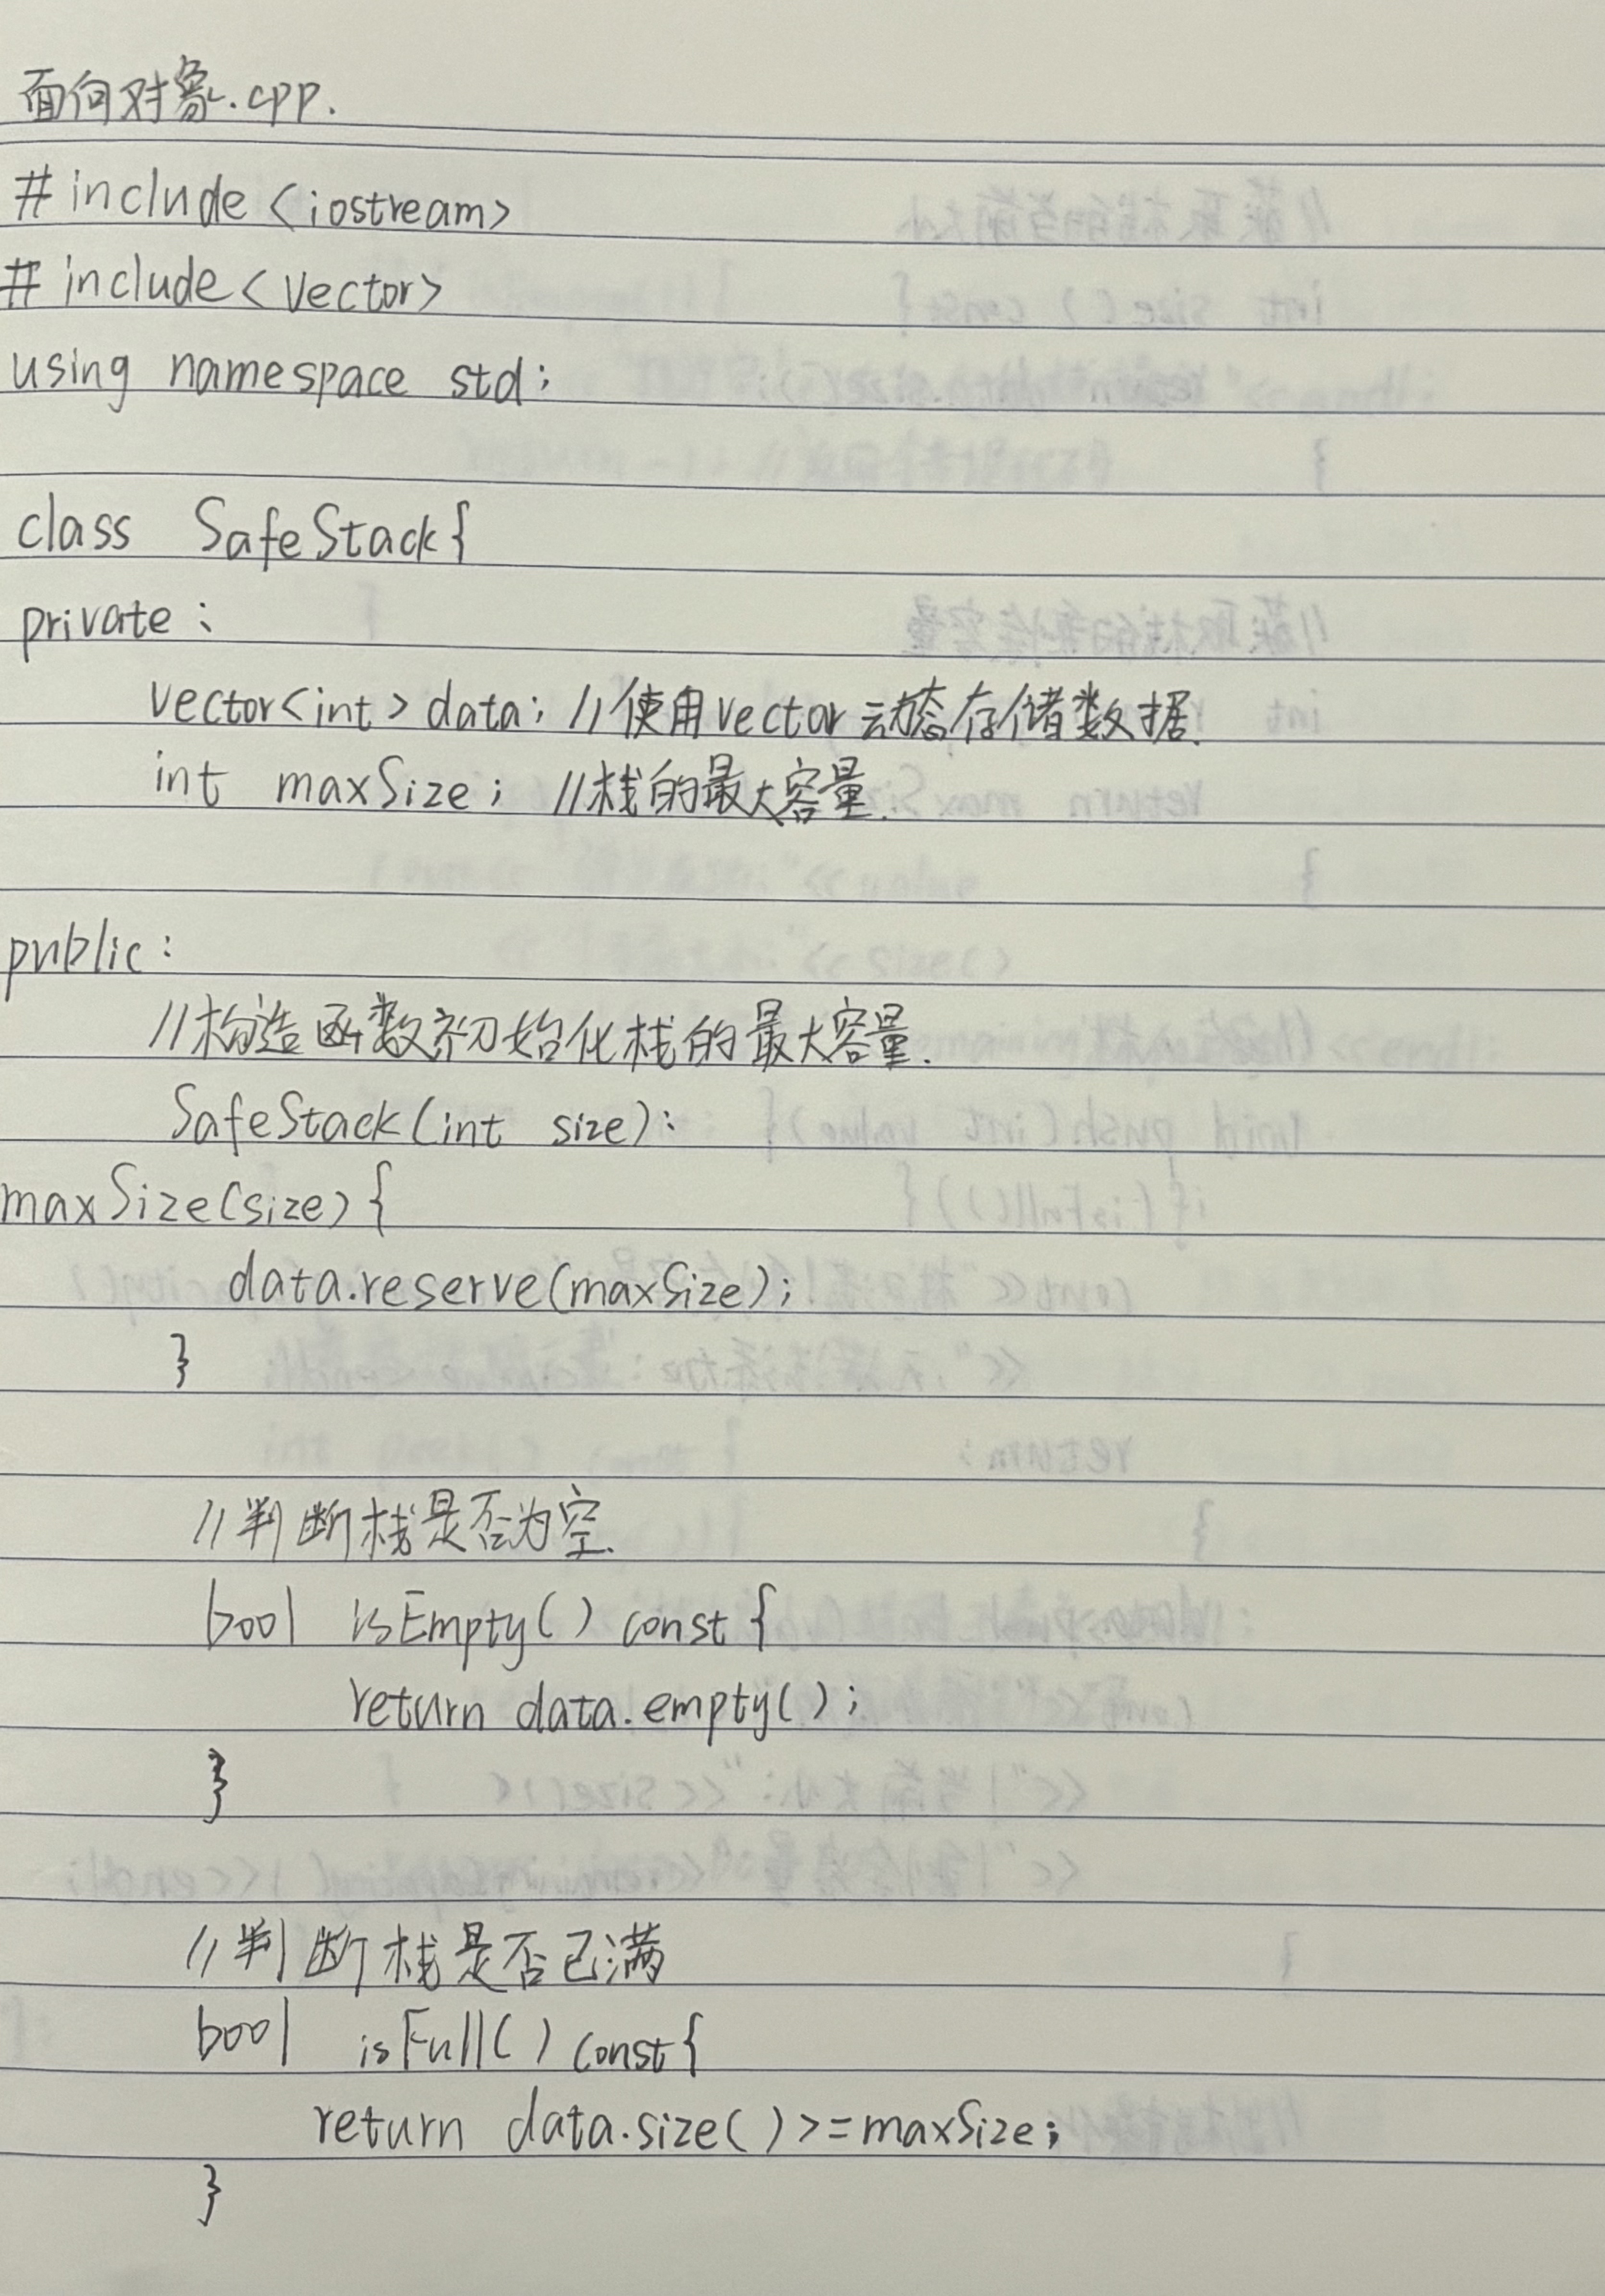 面向对象.cpp.
#include <iostream>
#include <vector>
using namespace std;
class SafeStack{
private:
vector<int> data; //使用vector动态存储数据.
int maxSize; //栈的最大容量.
public:
//构造函数初始化栈的最大容量.
SafeStack(int size):
maxSize(size){
data.reserve(maxSize);
}
//判断栈是否为空.
bool isEmpty() const{
return data.empty();
}
//判断栈是否已满
bool isFull() const{
return data.size()>=maxSize;
}